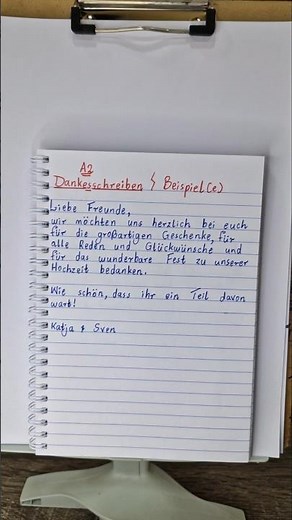 A2
Dankesschreiben / Beispiel(e)
Liebe Freunde,
wir möchten uns herzlich bei euch
für die großartigen Geschenke, für
alle Reden und Glückwünsche und
für das wunderbare Fest zu unserer
Hochzeit bedanken.
Wie schön, dass ihr ein Teil davon
wart!
Katja & Sven